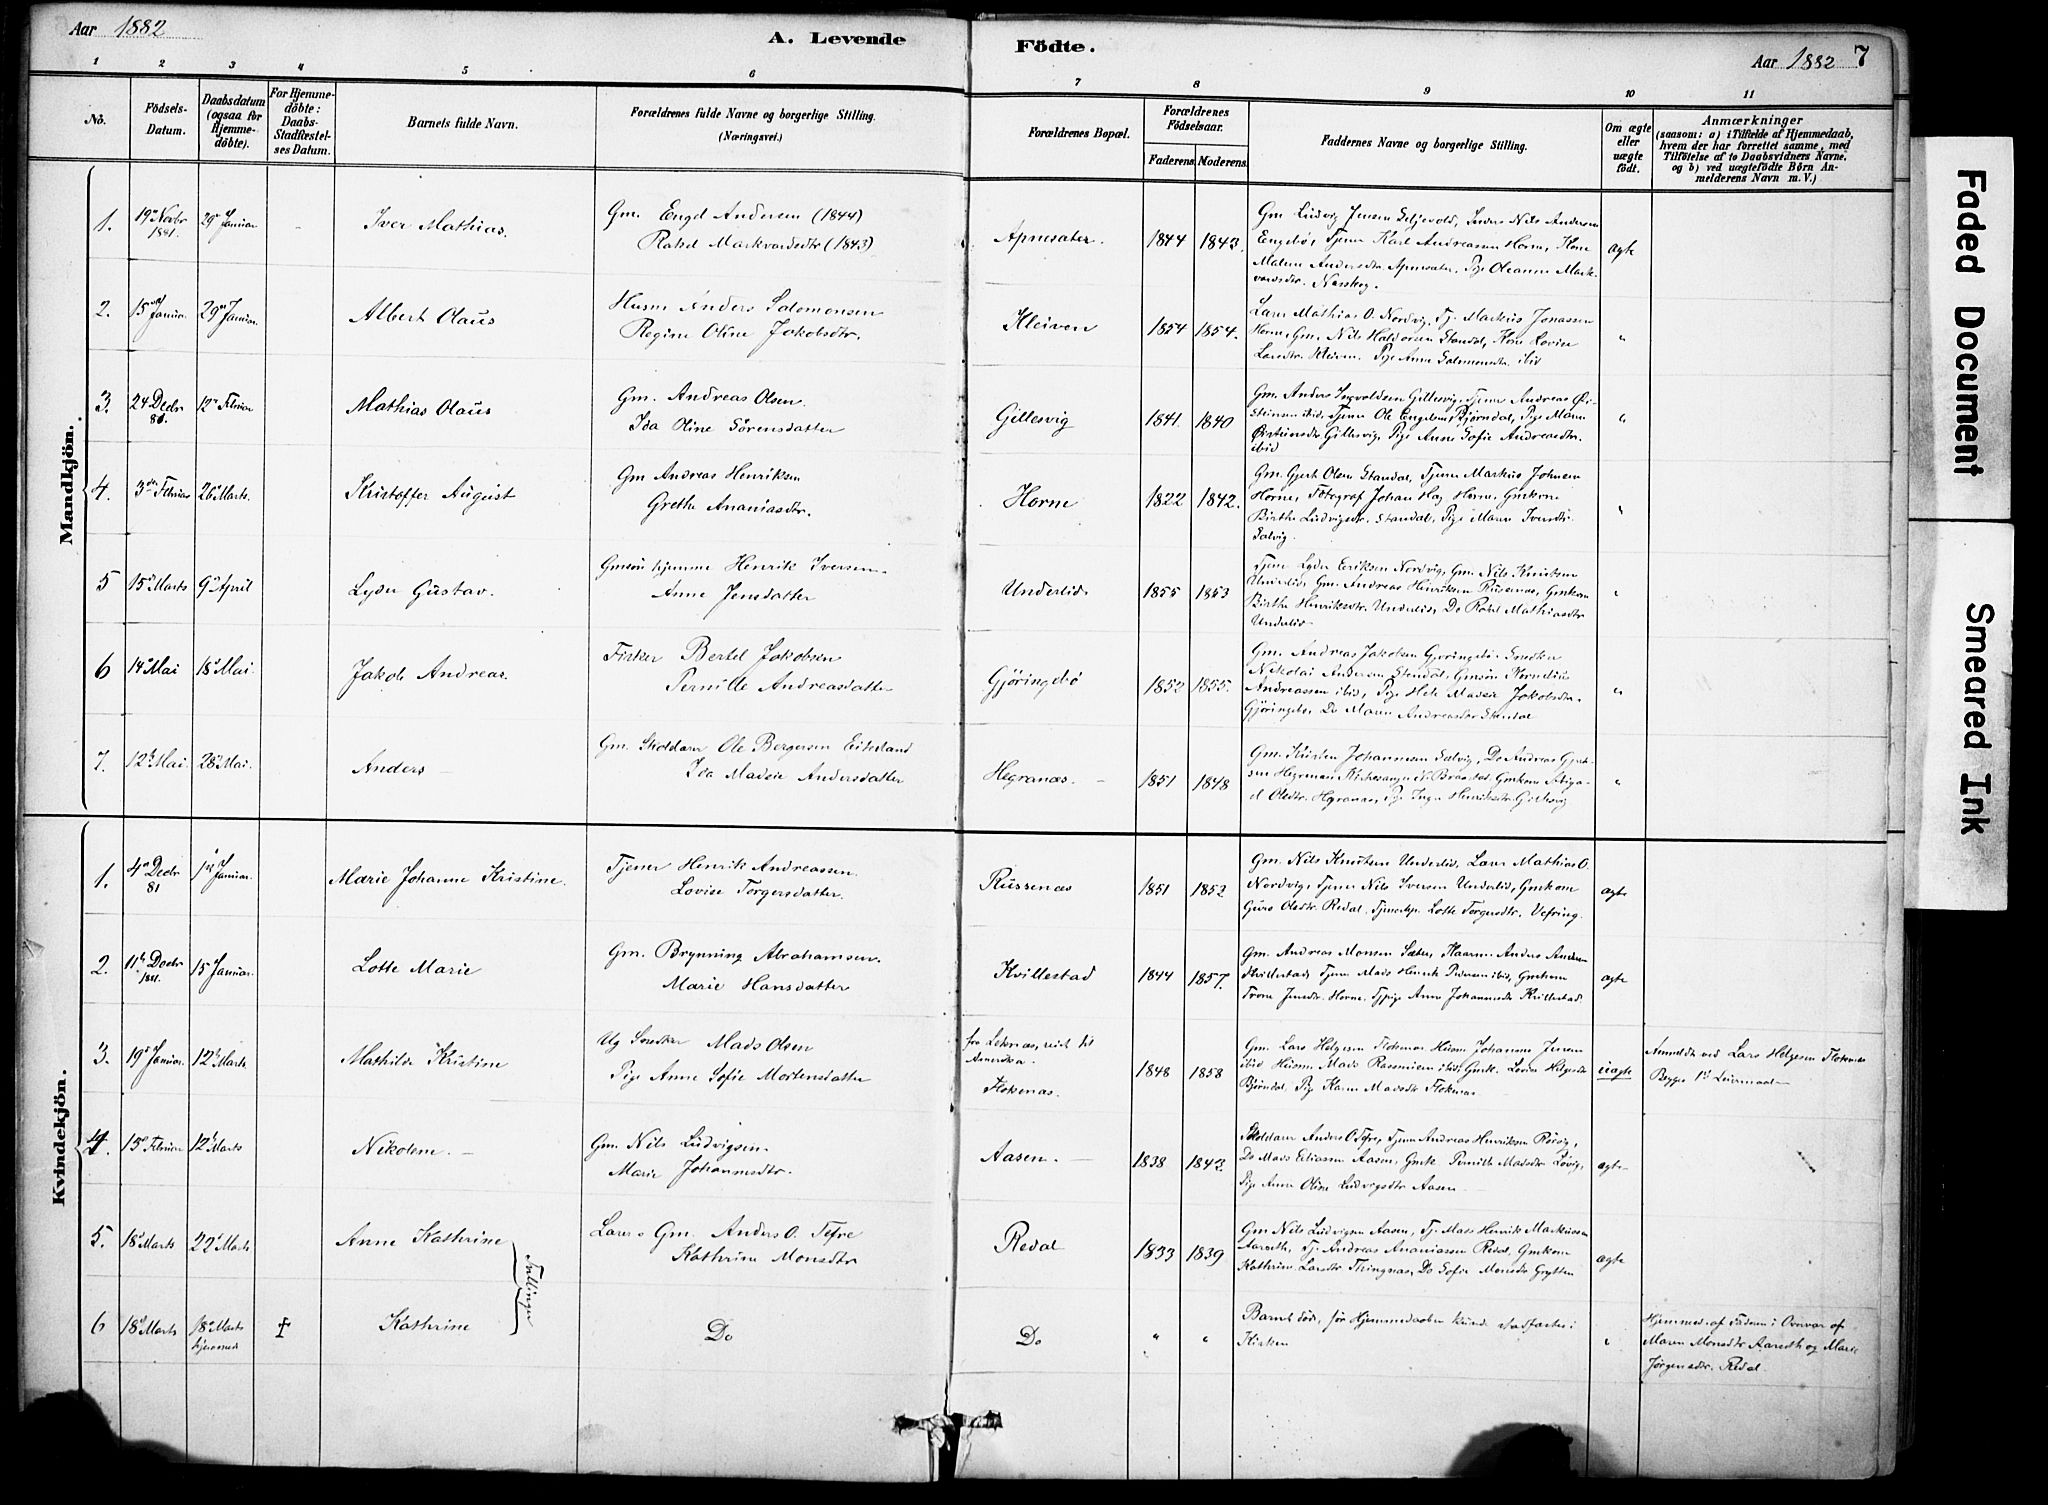 Aar 1882
A. Levende Födte.
Aar 1882 7
1 2 3 4 5 6 7 8 9 10 11
No.
Födsels-
Datum.
Daabsdatum
(ogsaa for
Hjemme-
döbte).
For Hjemme-
döbte:
Daabs-
Stadfæstel-
ses Datum.
Barnets fulde Navn.
Forældrenes fulde Navne og borgerlige Stilling.
(Næringsvei.)
Forældrenes Bopæl.
Forældrenes
Födselsaar.
Faderens. Moderens.
Faddernes Navne og borgerlige Stilling.
Om ægte
eller
uægte
födt.
Anmærkninger
(saasom: a) i Tilfælde af Hjemmedaab,
hvem der har forrettet samme, med
Tilföielse af to Daabsvidners Navne,
og b) ved uægtefödte Börn An-
melderens Navn m. V.)
Mandkjön.
1. 19 Novbr 1881. 29 Januar Iver Mathias.
Gm. Engel Andersen (1844)
Rakel Markvardsdtr (1843)
Apnesæter. 1844 1843.
Gm Ludvig Jensen Nils Andersen
Engebö, Tjener Karl Andreassen Horne, Kone
Malene Andersdtr Apnesæter, Pige Oleanna Mark-
vardsdtr.
ægte
2. 15 Januar 29 Januar. Albert Olaus
Husm Anders Salomonsen
Regine Oline Jakobsdtr.
Kleiven 1854 1854.
Lærer Mathias O. Nordvig, Tj. Markus Jonassen
Horne, Gm. Nils Standal, Kone Lovise
Larsdtr. Kleiven. Pige Anne Salomonsdtr. ibid
"
3. 24 Decbr 81. 12 Februar Mathias Olaus
Gm. Andreas Olsen.
Ida Oline Sörensdatter
Gillesvig 1841. 1840
Gm. Anders Ingvoldsen Gillesvig, Tjener Andreas Öi-
steinsen ibid, Tjener Ole Engelsen Björndal, Pige Maren
Öisteinsdtr Gillesvig, Pige Anne Sofie Andreasdtr.
ibid
"
4. 3 Februar 26 Marts. Kristoffer August
Gm Andreas Henriksen
Grethe Ananiasdtr.
Horne 1822 1842.
Gm. Gjert Olsen Standal, Tjener Markus Johnsen
Horne, Fotograf Johan Horne, Gmkone
Birthe Ludvigsdtr. Standal, Pige Maren Iversdtr.
"
5 15 Marts 9 April Lyder Gustav.
Gmsön hjemme Henrik Iversen
Anne Jensdatter
Underlid 1855 1853
Tjener Lyder Eriksen Nordvig, Gm. Nils Knutsen
Underlid, Gm. Andreas Henriksen Russenæs, Gmkone
Birthe Henriksdtr. Underlid, Do Rakel Mathiasdtr
Underlid
"
6 14 Mai 18 Mai. Jakob Andreas.
Fisker Bertel Jakobsen
Pernille Andreasdatter
Gjöringebö 1852 1855.
Gm. Andreas Jakobsen Gjöringebö Snedker
Nikolai Andersen Standal, Gmsön Kornelius
Andreassen ibid, Pige Madsie Jakobsdtr.
Gjöringebö Do Maren Andreasdtr Standal
"
7. 12 Mai. 28 Mai. Anders
Gm. Skoldærer Ole Bergersen Eikeland
Ida Madsie Andersdatter
Hegranæs. 1851 1848
Gm. Kristen Johannesen Do Andreas
Hegrenæs, Kirkesanger N. Braastad, Gmkone
Olsdtr. Hegrenæs, Pige Inger Henriksdtr. Gillesvig
"
Kvindekjön.
1. 4 Decbr 81 Januar. Marie Johanne Kristine.
Tjener Henrik Andreassen.
Lovise Torgersdatter.
Russenæs 1851 1852
Gm. Nils Knutsen Underlid, Lærer Mathias O.
Nordvig, Tjener Nils Iversen Underlid, Gmkone
Guro Olsdtr. Redal. Lotte Torgersdtr. Vefring.
ægte
2. 11 Decbr 1881. 15 Januar. Lotte Marie
Gm. Brynning Abrahamsen.
Marie Hansdatter
Kvillestad 1844 1857.
Gm. Andreas Monsen Sæter, Anders
Kvillestad, Tjener Mads Henrik ibid, Gmkone
Jensdtr. Horne. Anne Johannesdtr Kvillestad
ægte
3. 19 Januar. 12 Marts. Mathilde Kristine
Ug Snedker Mads Olsen
Pige Anne Sofie Mortensdatter
fra Leknæs, reist til
Amerika
Flokenæs. 1848 1858
Gm. Lars Helgesen Flokenæs Husm Johannes Jensen
ibid Husm. Mads Rasmussen ibid, Gmk. Lovise Helgesdtr
Björndal, Pige Karen Madsdtr Flokenæs
uægte
Anmeldt ved Lars Helgesen Flokenæs
Begges 1ste Leiermaal
4. 15 Februar 12 Marts Nikoline.
Gm. Nils Ludvigsen.
Marie Johannesdtr.
Aasen. 1838 1842.
Skoldærer Anders O Tefre, Tjener Andreas Henriksen
Do Mads Eliassen Aasen, Gmk Pernille Madsdtr
Pige Anne Oline Ludvigsdtr Aasen
ægte
5. 18 Marts 22 Marts Anne Kathrine
Lærer o Gm. Anders O. Tefre
Kathrine Monsdtr
Redal 1833 1839
Gm Nils Ludvigsen Aasen, Tj. Mads Henrik Markussen
Aareth, Tj. Andreas Ananiassen Redal, Gmkone
Kathrine Larsdtr Thingnæs, Do Sofie Monsdtr Grytten
ægte
Tvillinger
6 18 Marts 18 Marts hjemmed. † Kathrine
Do
Do " "
Barnet döde, för Hjemmedaaben kunde stadfæstes i
Kirken
"
Hjemmed. af Faderen i Overvær af
Maren Monsdtr Aareth og Marie
Jörgensdtr. Redal.
Faded Document
Smeared Ink